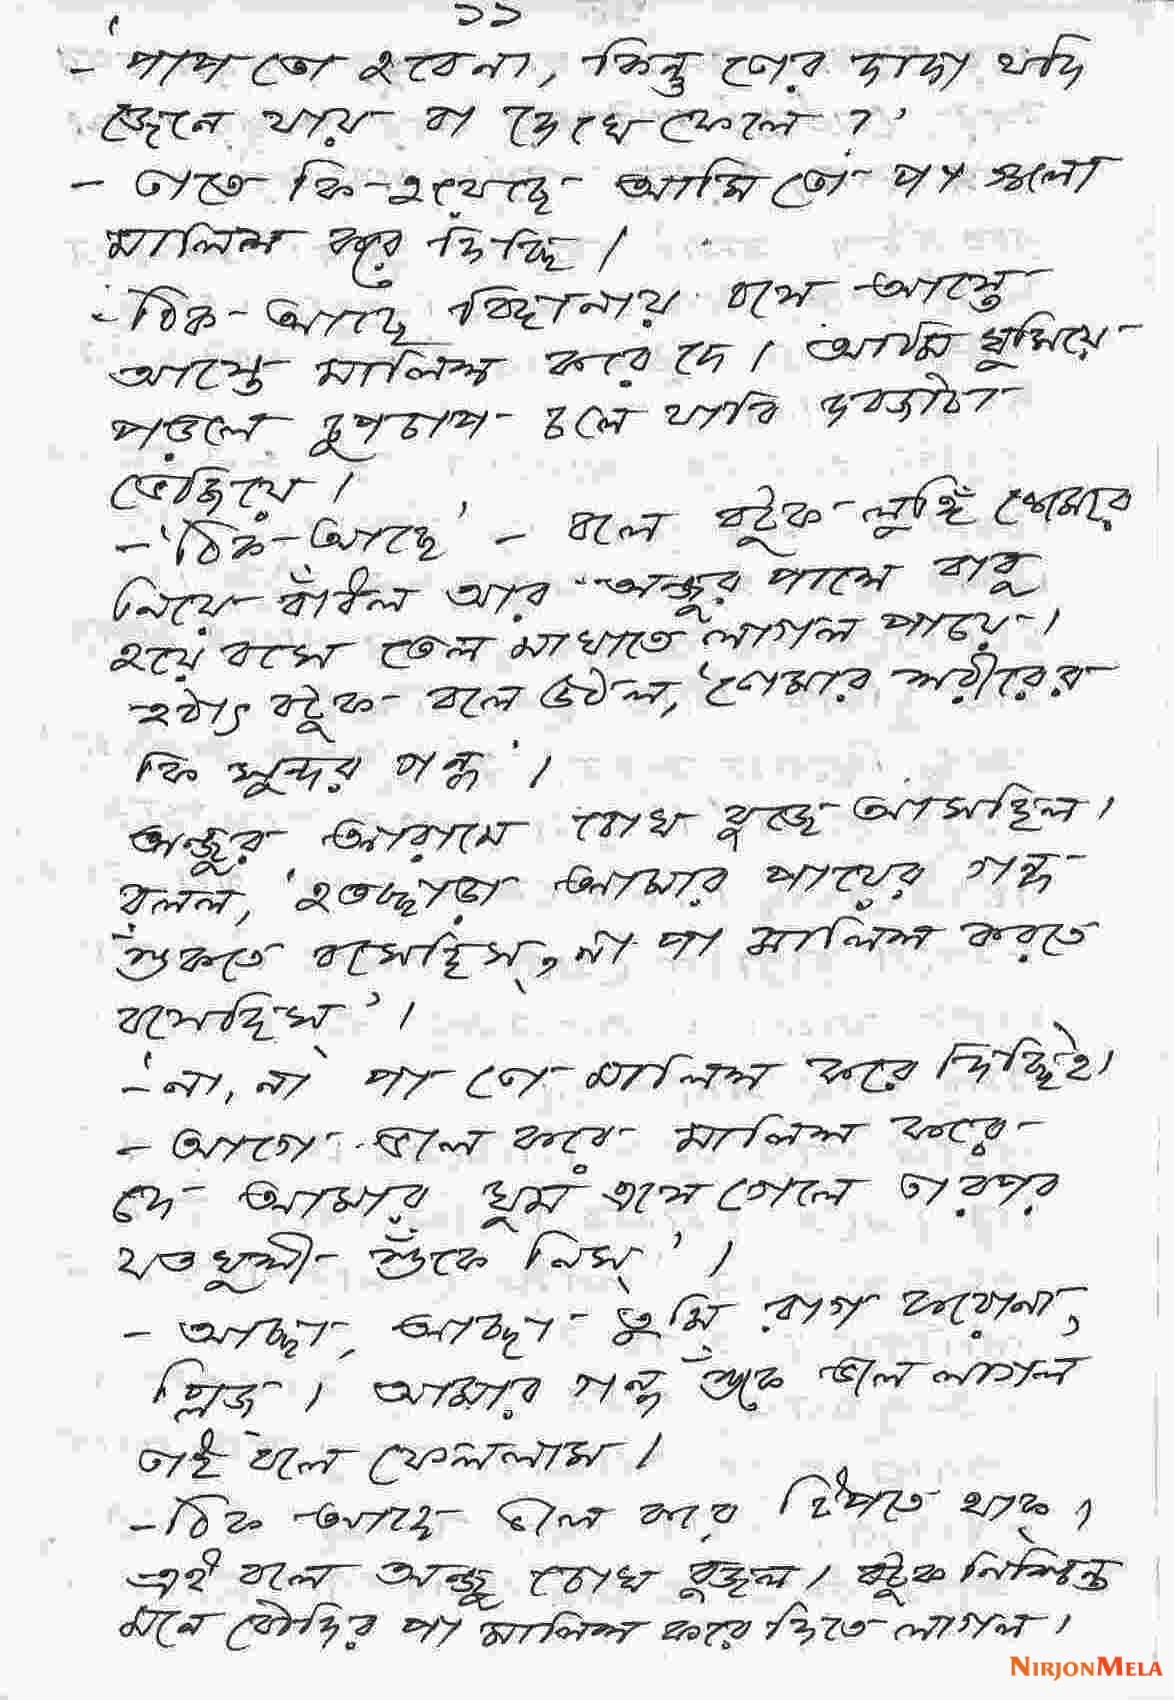 ১১
- 'পাপ তো হবেনা, কিন্তু তোর দাদা যদি
জেনে যায় বা দেখে ফেলে ?'
- তাতে কি হয়েছে আমি তো পা গুলো
মালিশ করে দিচ্ছি ।
- ঠিক আছে বিছানায় বসে আস্তে
আস্তে মালিশ করে দে । আমি ঘুমিয়ে
পড়লে চুপচাপ চলে যাবি দরজাটা
ভেজিয়ে ।
- 'ঠিক আছে' - বলে বটুক লুঙ্গি
নিয়ে বাঁধল আর অঞ্জুর পাশে বাবু
হয়ে বসে তেল মাখাতে লাগল পায়ে ।
হঠাৎ বটুক বলে উঠল, 'তোমার শরীরের
কি সুন্দর গন্ধ' ।
অঞ্জুর আরামে চোখ বুজে আসছিল ।
বলল, 'হতচ্ছাড়া আমার পায়ের গন্ধ
শুঁকতে বসেছিস্, না পা মালিশ করতে
বসেছিস্' ।
- 'না, না পা তো মালিশ করে দিচ্ছিই ।
- আগে ভাল করে মালিশ করে
দে আমার ঘুম এসে গেলে তারপর
যত খুশী শুঁকে নিস্' ।
- আচ্ছা, আচ্ছা তুমি রাগ করোনা,
প্লিজ । আমার গন্ধ শুঁকে ভাল লাগল
তাই বলে ফেললাম ।
- ঠিক আছে ভাল করে টিপতে থাক্ ।
এই বলে অঞ্জু চোখ বুজল । বটুক নিশ্চিন্ত
মনে বৌদির পা মালিশ করে দিতে লাগল ।
NIRJONMELA